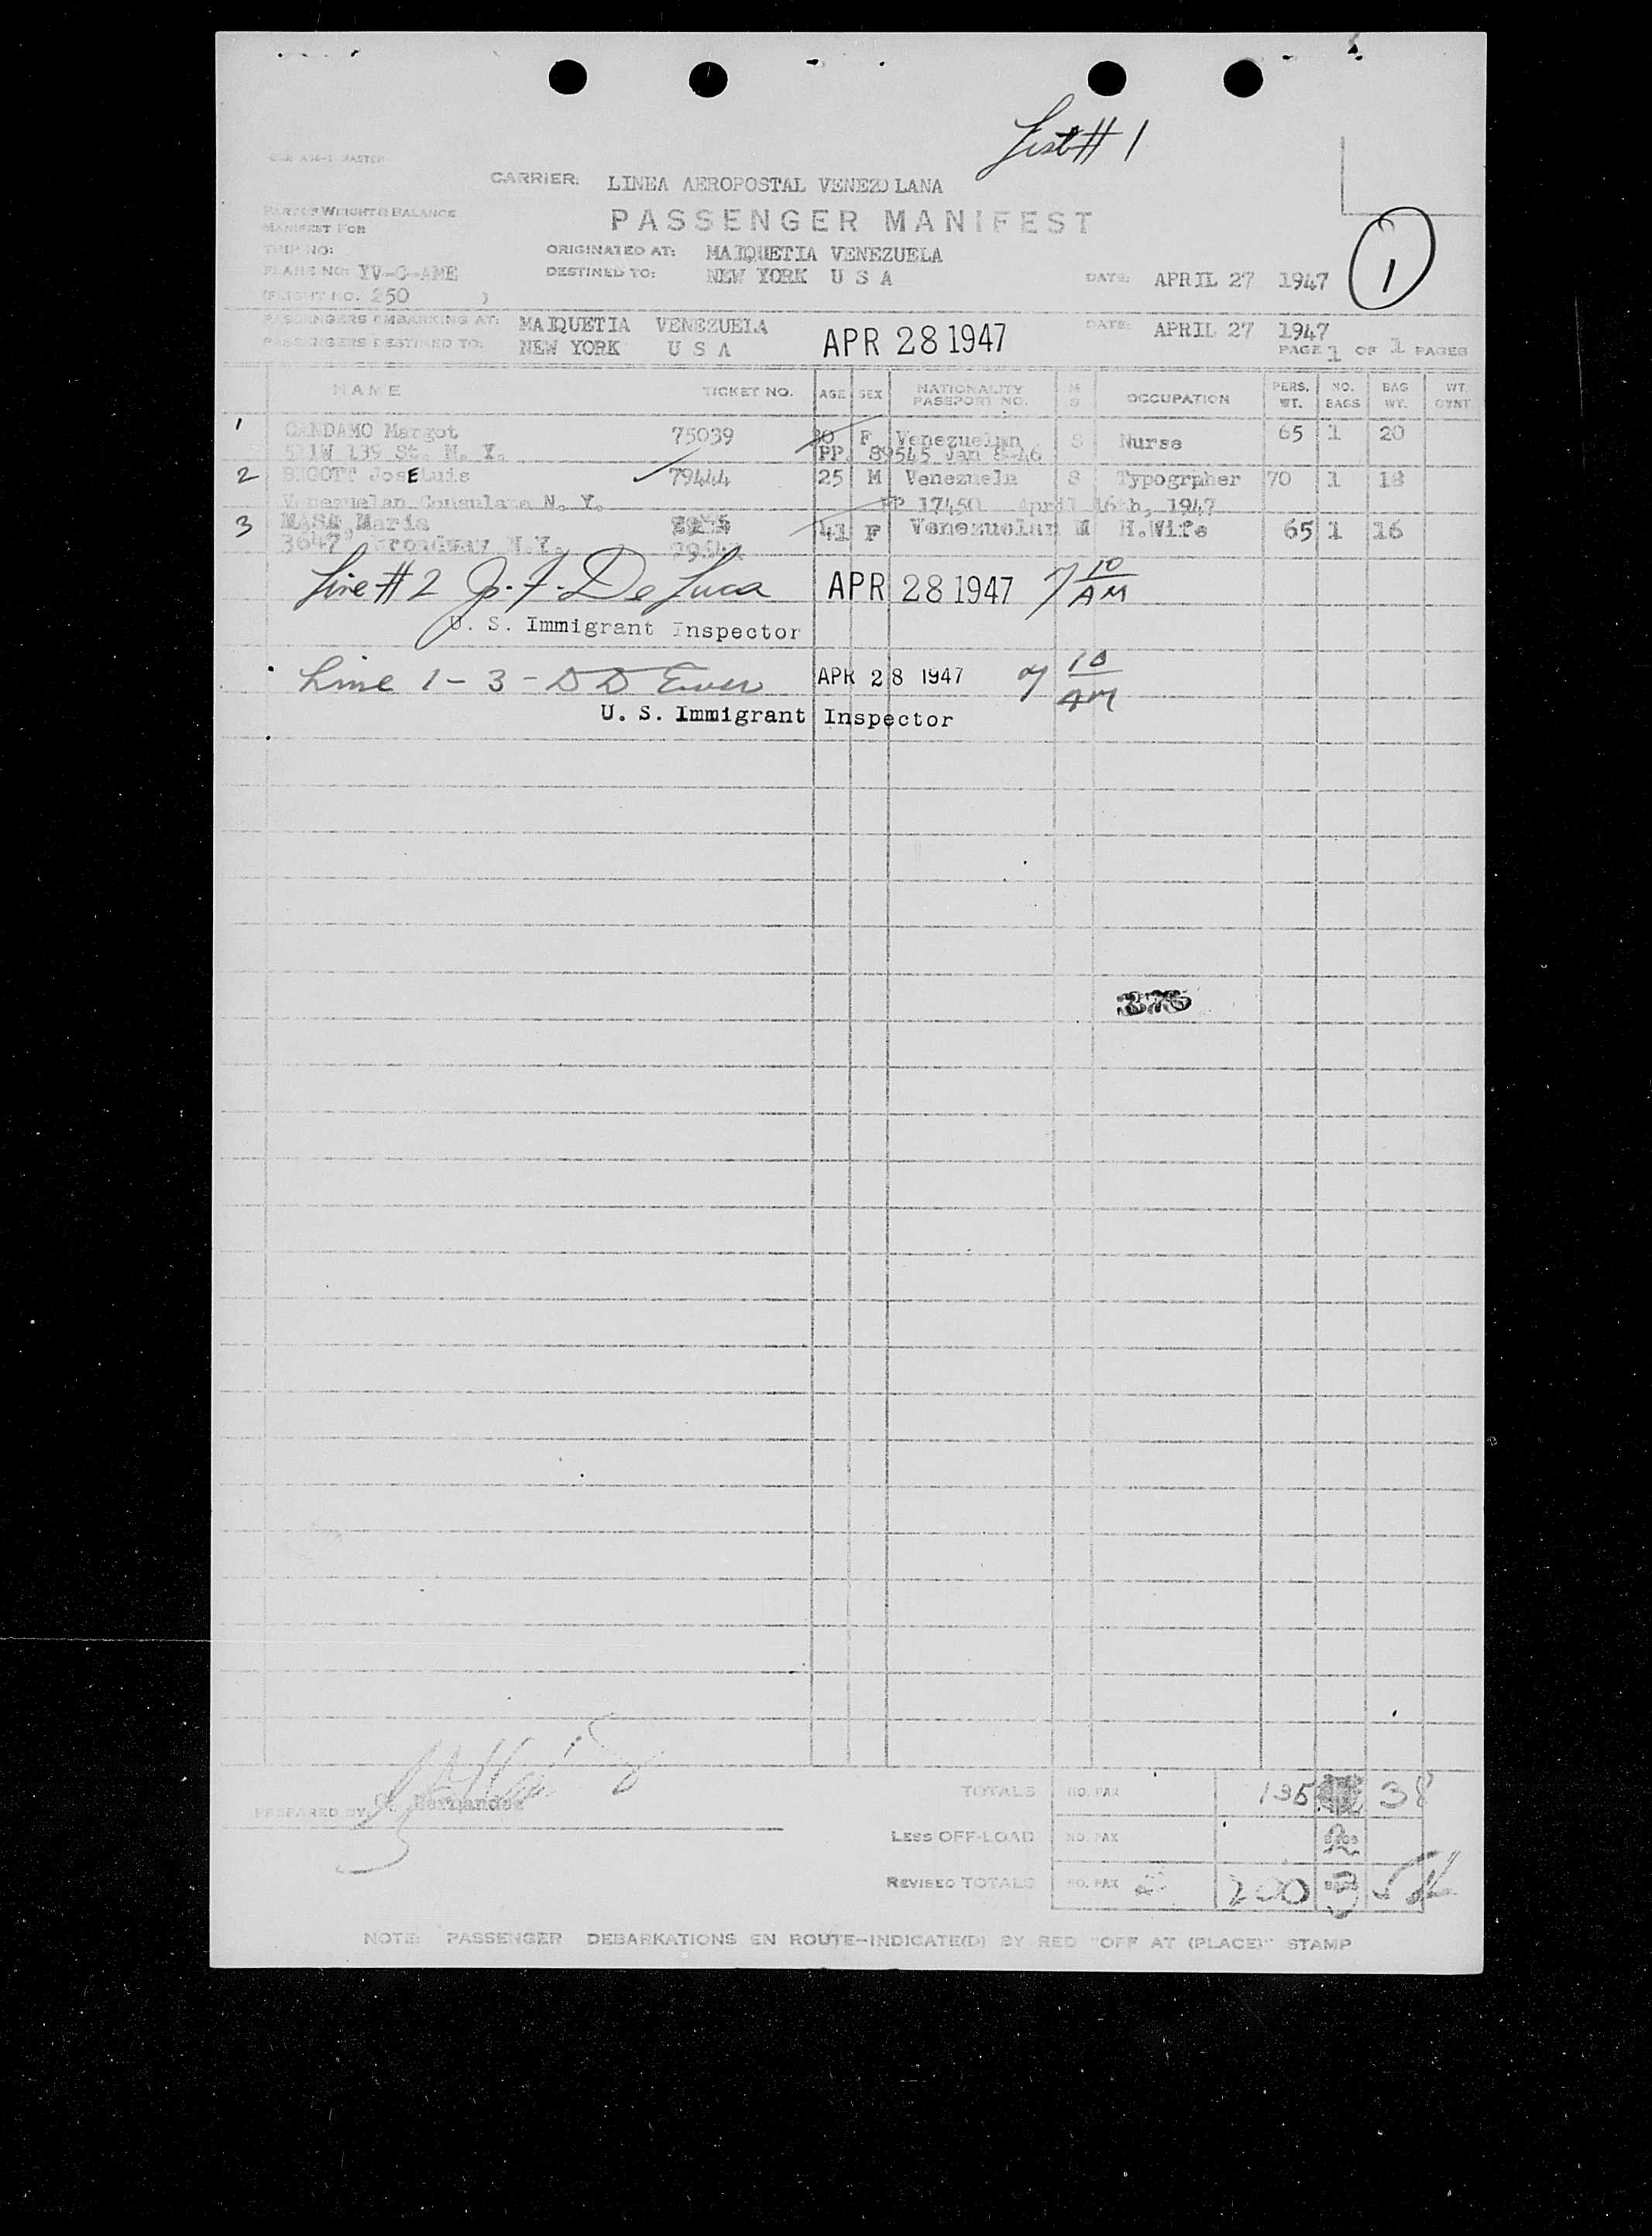 List # 1
CARRIER: LINEA AEROPOSTAL VENEZO LANA
PART OF WEIGHT & BALANCE
MANIFEST FOR
PASSENGER MANIFEST
TRIP NO:
ORIGINATED AT: MAIQUETIA VENEZUELA
PLANE NO: YV-C-AME
DESTINED TO: NEW YORK U S A
DATE: APRIL 27 1947
1
(FLIGHT NO. 250 )
PASSENGERS EMBARKING AT: MAIQUETIA VENEZUELA
DATE: APRIL 27 1947
PASSENGERS DESTINED TO: NEW YORK U S A
APR 28 1947
PAGE 1 OF 1 PAGES
NAME TICKET NO. AGE SEX NATIONALITY PASSPORT NO. M S OCCUPATION PERS. WT. NO. BAGS BAG WT. WT. CYNT
1 GANDAMO Margot 75039 30 F Venezuelan S Nurse 65 1 20
139 St. N. Y. PP. 89545 Jan 8-46
2 BIGOTT JosE Luis 79444 25 M Venezuela S Typogrpher 70 1 18
Venezuelan Consulate N. Y. PP 17450 April 16th, 1947
3 MASA Maria 41 F Venezuelan M H.Wife 65 1 16
3647 Broadway N.Y.
Line # 2 J. F. De Luca APR 28 1947 7 10 AM
U. S. Immigrant Inspector
Line 1 - 3 - D D APR 28 1947 7 10 AM
U. S. Immigrant Inspector
375
TOTALS NO. PAX 135 38
PREPARED BY
LESS OFF-LOAD NO. PAX BAGS
REVISED TOTALS NO. PAX 200 BAGS
NOTE: PASSENGER DEBARKATIONS EN ROUTE-INDICATE(D) BY RED "OFF AT (PLACE)" STAMP